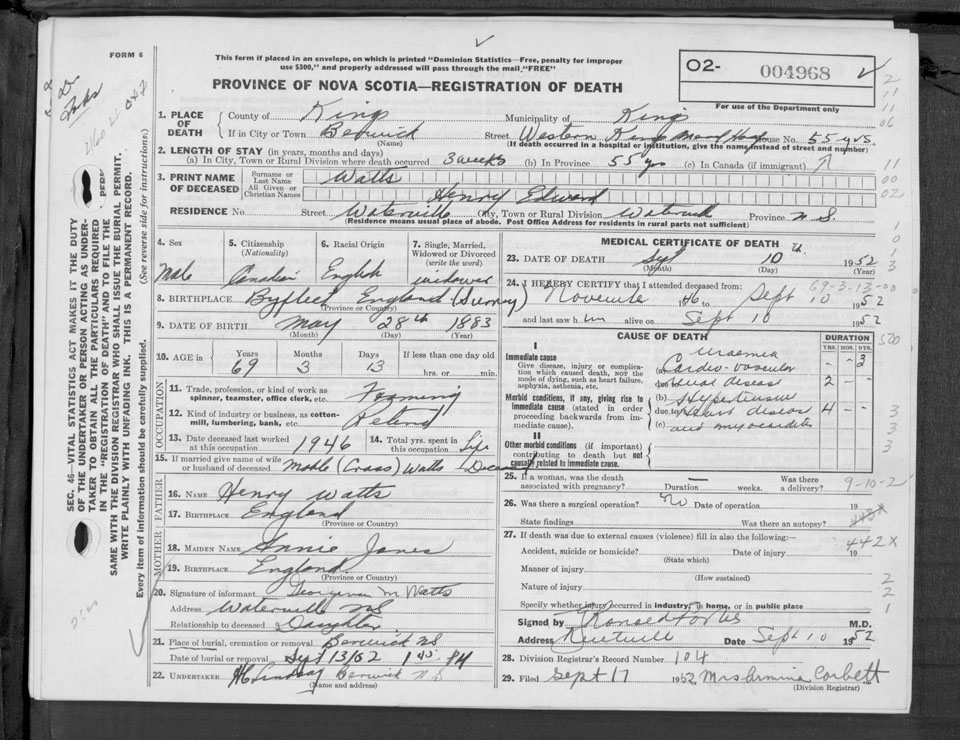 FORM 6
This form if placed in an envelope, on which is printed "Dominion Statistics—Free, penalty for improper
use $300," and properly addressed will pass through the mail "FREE"
PROVINCE OF NOVA SCOTIA—REGISTRATION OF DEATH
O2- 004968
For use of the Department only
1. PLACE OF DEATH County of Kings Municipality of Kings
If in City or Town Berwick Street Western Kings House No. 55 yrs
(Name) (If death occurred in a hospital or institution, give the name instead of street and number)
2. LENGTH OF STAY (in years, months and days)
(a) In City, Town or Rural Division where death occurred 3 weeks (b) In Province 55 yrs (c) In Canada (if immigrant)
3. PRINT NAME OF DECEASED Surname or Last Name Watts
All Given or Christian Names Henry Edward
RESIDENCE No. Street Waterville City, Town or Rural Division Waterville Province N.S.
(Residence means usual place of abode. Post Office Address for residents in rural parts not sufficient)
4. Sex Male
5. Citizenship (Nationality) Canadian
6. Racial Origin English
7. Single, Married, Widowed or Divorced (write the word) widower
8. BIRTHPLACE Byfleet England (Surrey)
(Province or Country)
9. DATE OF BIRTH May 28th 1883
(Month) (Day) (Year)
10. AGE in Years 69 Months 3 Days 13 If less than one day old hrs. or min.
OCCUPATION
11. Trade, profession, or kind of work as spinner, teamster, office clerk, etc. Farming
12. Kind of industry or business, as cotton-mill, lumbering, bank, etc. Retired
13. Date deceased last worked at this occupation 1946 14. Total yrs. spent in this occupation Life
15. If married give name of wife or husband of deceased Mable (Cross) Watts Deceased
FATHER
16. NAME Henry Watts
17. BIRTHPLACE England
(Province or Country)
MOTHER
18. MAIDEN NAME Annie Jones
19. BIRTHPLACE England
(Province or Country)
20. Signature of informant Georgina M Watts
Address Waterville NS
Relationship to deceased Daughter
21. Place of burial, cremation or removal Berwick NS
Date of burial or removal Sept 13/52
22. UNDERTAKER Lindsay Berwick NS
(Name and address)
MEDICAL CERTIFICATE OF DEATH
23. DATE OF DEATH Sept 10th 1952
(Month) (Day) (Year)
24. I HEREBY CERTIFY that I attended deceased from: 69-3-13-00
November 46 to Sept 10 1952
and last saw him alive on Sept 10 1952
CAUSE OF DEATH DURATION
YRS. MOS. DYS.
I
Immediate cause
Give disease, injury or complication which caused death, not the mode of dying, such as heart failure, asphyxia, asthenia, etc.
(a) Uraemia - - 3
Cardio-vascular
due to renal disease 2 -
Morbid conditions, if any, giving rise to immediate cause (stated in order proceeding backwards from immediate cause).
(b) Hypertensive
due to heart disease 4 - -
(c) and myocarditis
II
Other morbid conditions (if important) contributing to death but not causally related to immediate cause.
25. If a woman, was the death associated with pregnancy? Duration weeks. Was there a delivery? 9-10-2
26. Was there a surgical operation? No Date of operation 19
State findings Was there an autopsy?
27. If death was due to external causes (violence) fill in also the following:— 442X
Accident, suicide or homicide? Date of injury 19
(State which)
Manner of injury
(How sustained)
Nature of injury
Specify whether injury occurred in industry, in home, or in public place
Signed by Ronald Forbes M.D.
Address Kentville Date Sept 10 1952
28. Division Registrar's Record Number 104
29. Filed Sept 17 1952 Mrs Armina Corbett
(Division Registrar)
SEC. 46—VITAL STATISTICS ACT MAKES IT THE DUTY
OF THE UNDERTAKER OR PERSON ACTING AS UNDER-
TAKER TO OBTAIN ALL THE PARTICULARS REQUIRED
IN THE "REGISTRATION OF DEATH" AND TO FILE THE
SAME WITH THE DIVISION REGISTRAR WHO SHALL ISSUE THE BURIAL PERMIT.
WRITE PLAINLY WITH UNFADING INK. THIS IS A PERMANENT RECORD.
Every item of information should be carefully supplied. (See reverse side for instructions.)